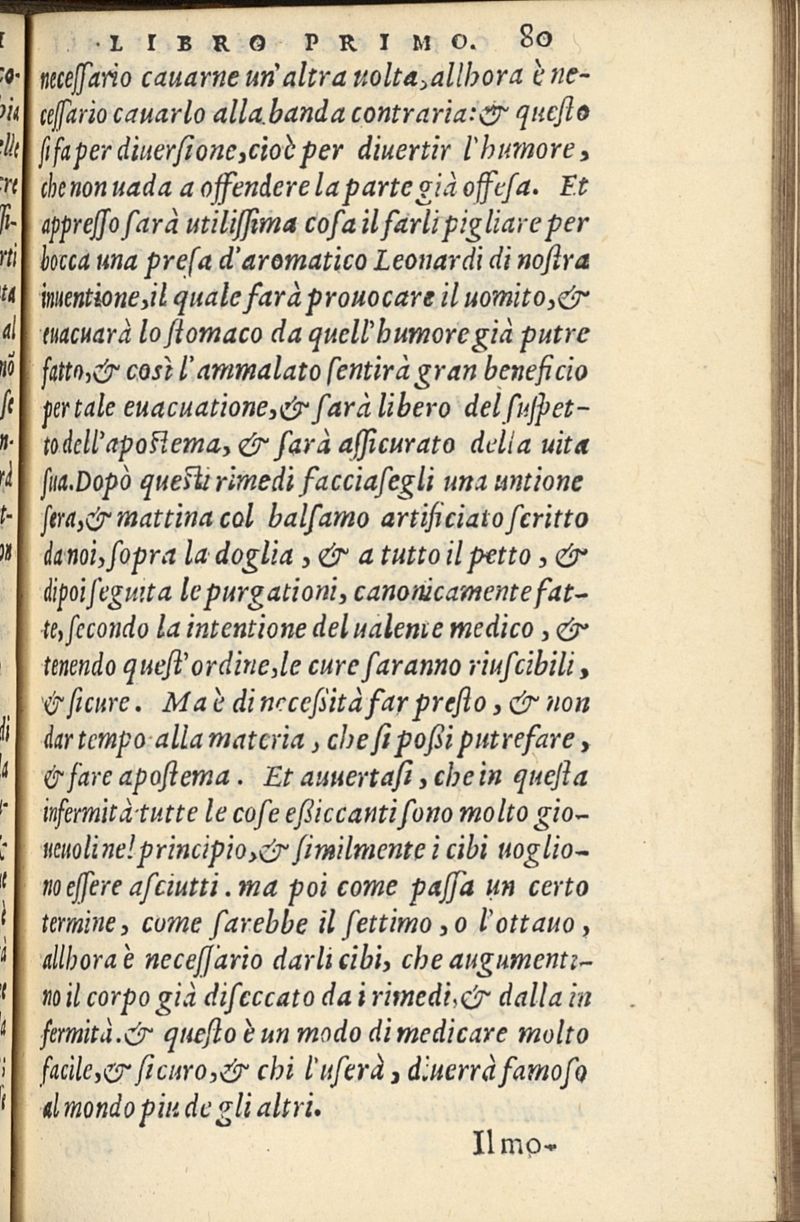 LIBRO PRIMO. 80
neceſſario cauarne un' altra uolta, allhora è ne-
ceſſario cauarlo alla banda contraria: & queſto
ſi fa per diuerſione, cioè per diuertir l'humore,
che non uada a offendere la parte già offeſa. Et
appreſſo ſarà utiliſſima coſa il farli pigliare per
bocca una preſa d'aromatico Leonardi di noſtra
inuentione, il quale farà prouocare il uomito, &
euacuarà lo ſtomaco da quell'humore già putre
fatto, & così l'ammalato ſentirà gran beneficio
per tale euacuatione, & ſarà libero del ſuſpet-
to dell'apoſtema, & ſarà aſſicurato della uita
ſua. Dopò queſti rimedi facciaſegli una untione
ſera, & mattina col balſamo artificiato ſcritto
da noi, ſopra la doglia, & a tutto il petto, &
dipoi ſeguita le purgationi, canonicamente fat-
te, ſecondo la intentione del ualente medico, &
tenendo queſt'ordine, le cure ſaranno riuſcibili,
& ſicure. Ma è di neceſsità far preſto, & non
dar tempo alla materia, che ſi poſsi putrefare,
& fare apoſtema. Et auuertaſi, che in queſta
infermità tutte le coſe eſsiccanti ſono molto gio-
ueuoli nel principio, & ſimilmente i cibi uoglio-
no eſſere aſciutti. ma poi come paſſa un certo
termine, come ſarebbe il ſettimo, o l'ottauo,
allhora è neceſſario darli cibi, che augumenti-
no il corpo già diſeccato da i rimedi, & dalla in
fermità. & queſto è un modo di medicare molto
facile, & ſicuro, & chi l'uſerà, diuerrà famoſo
al mondo piu de gli altri.
Il mo-